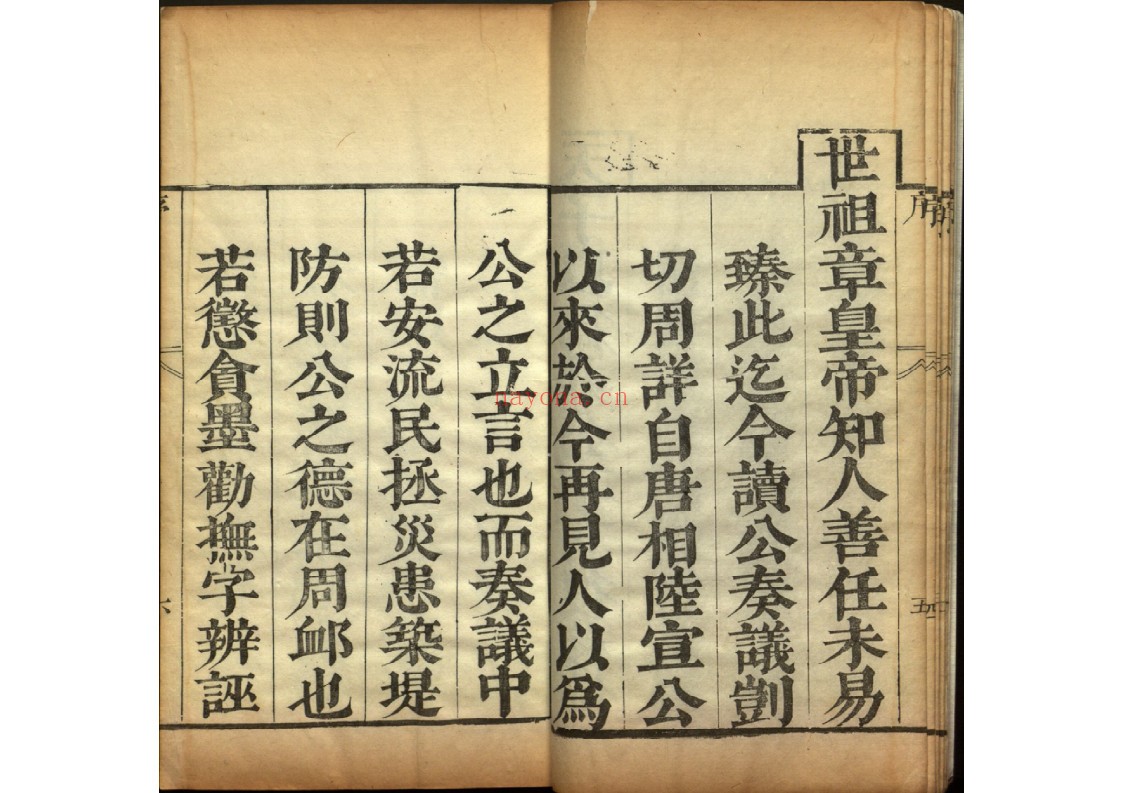 世祖章皇帝知人善任未易
臻此迄今讀公奏議剴
切周詳自唐相陸宣公
以來於今再見人以爲
公之立言也而奏議中
若安流民拯災患築堤
防則公之德在周邺也
若懲貪墨勸撫字辨誣
序
五